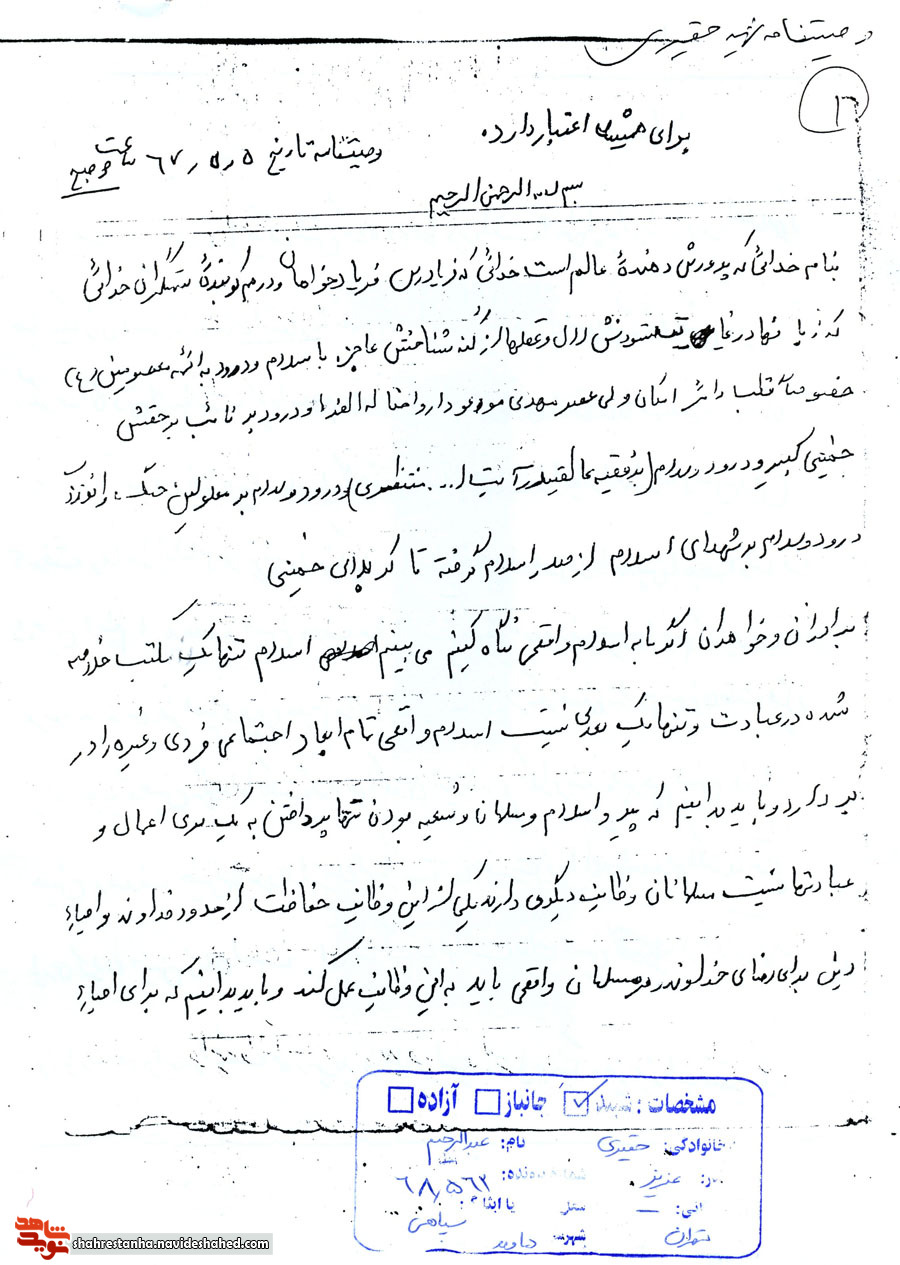 وصیتنامه شهید حقیری
برای همیشه اعتبار دارد
وصیتنامه تاریخ ۵ر۵ر۶۷ ساعت
صبح
بسم الله الرحمن الرحیم
بنام خدائی که پرورش دهندهٔ عالم است خدائی که فریادرس فریادخواهان و درهم کوبندهٔ ستمگران خدائی
که زبانها در لال و عقلها از کنه شناختش عاجز با سلام و درود به ائمه معصومین (ع)
خصوصاً قلب دائر امکان ولی عصر مهدی موعود ارواحنا له الفدا و درود بر نائب برحقش
خمینی کبیر و درود و سلام (بر فقیه عالیقدر آیت ا... منتظری) و درود و سلام بر معلولین جنگ
درود و سلام بر شهدای اسلام از صدر اسلام گرفته تا کربلای خمینی
برادران و خواهران اگر ما به اسلام واقعی نگاه کنیم می بینیم اسلام تنها یک مکتب خلاصه
شده در عبادت و تنها یک بعدی نیست اسلام واقعی تمام ابعاد اجتماعی فردی و غیره را در
بر دارد و باید بدانیم که پیرو اسلام و مسلمان و شیعه بودن تنها پرداختن به یک سری اعمال و
عبادتها نیست مسلمانان وظایف دیگری دارند یکی از این وظایف حفاظت از حدود خداوند و احیاء
دین برای رضای خداوند و مسلمان واقعی باید به این وظایف عمل کند و باید بدانیم که برای احیاء
مشخصات : شهید ☑ جانباز ☐ آزاده ☐
خانوادگی: حقیری نام: عبدالرحیم
در: عزیز شماره پرونده: ۶۸٫۵۶۲
اتی: —
تهران شهرستان دماوند
نوید شاهد
shahrestanha.navideshahed.com